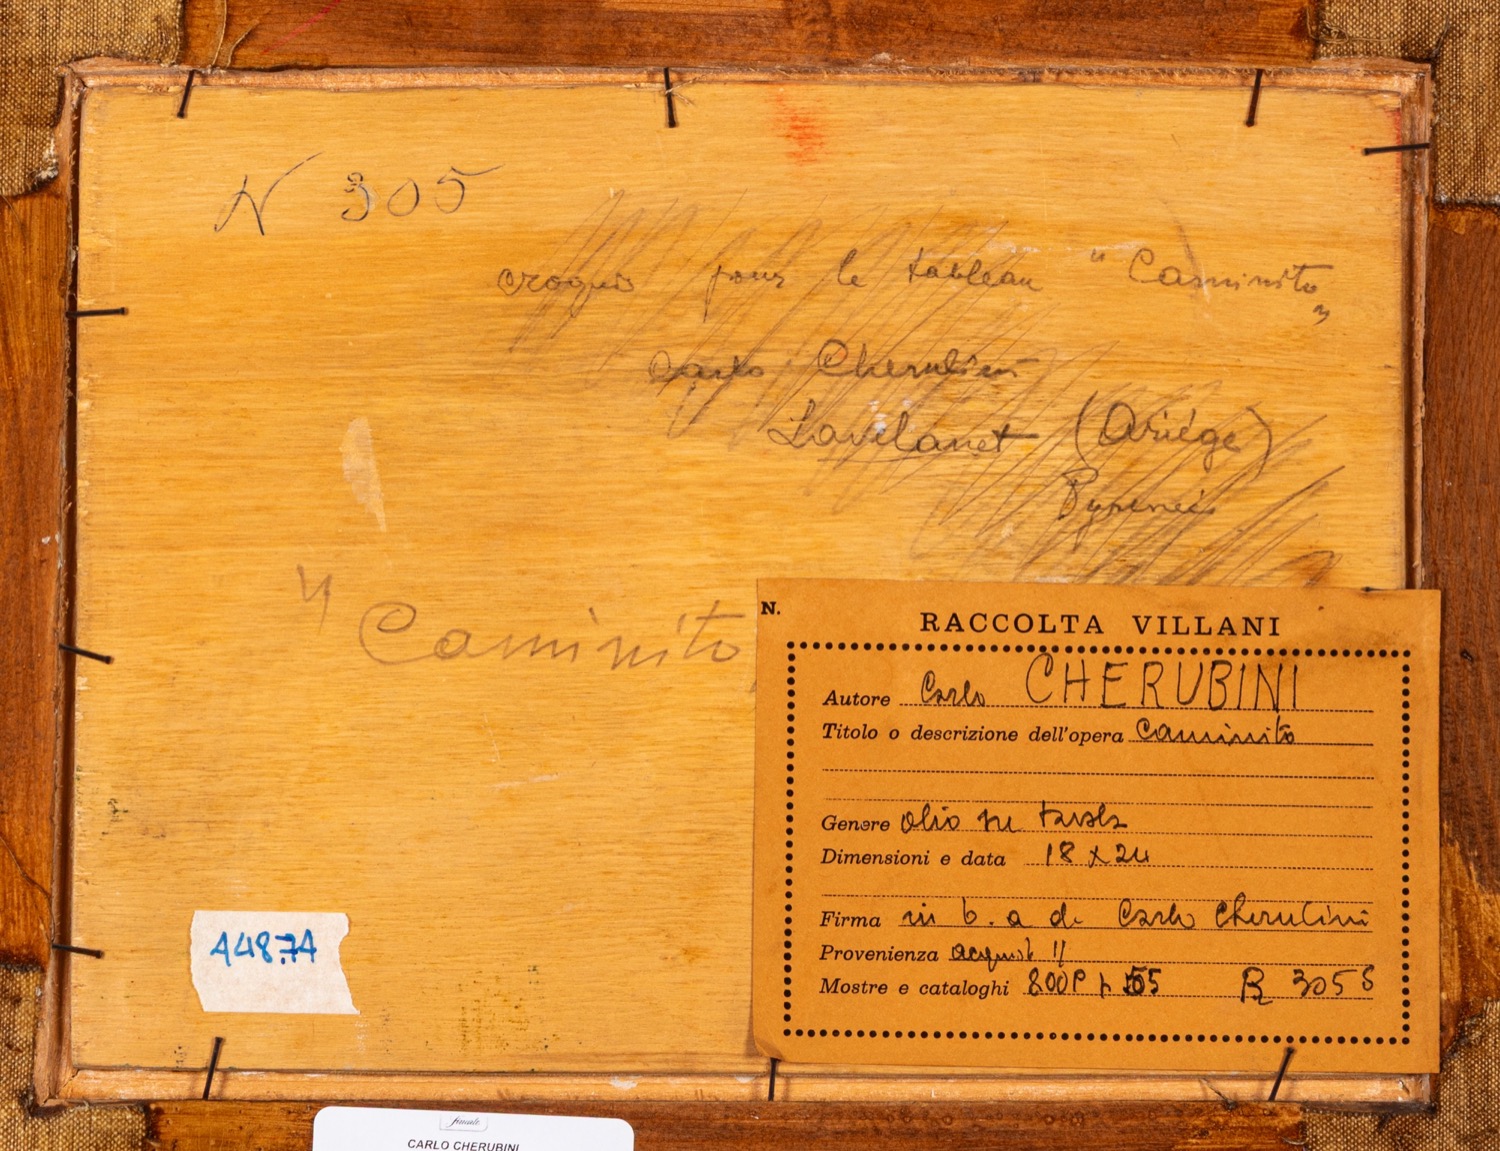 N 305
croquis pour le tableau "Caminito"
Carlo Cherubini
Lavelanet (Ariége)
Pyreneis
"Caminito
N.
RACCOLTA VILLANI
Autore Carlo CHERUBINI
Titolo o descrizione dell'opera Caminito
Genere olio su tavola
Dimensioni e data 18 x 24
Firma in b. a d. Carlo Cherubini
Provenienza
Mostre e cataloghi 800P 55 R 3056
A48.74
CARLO CHERUBINI